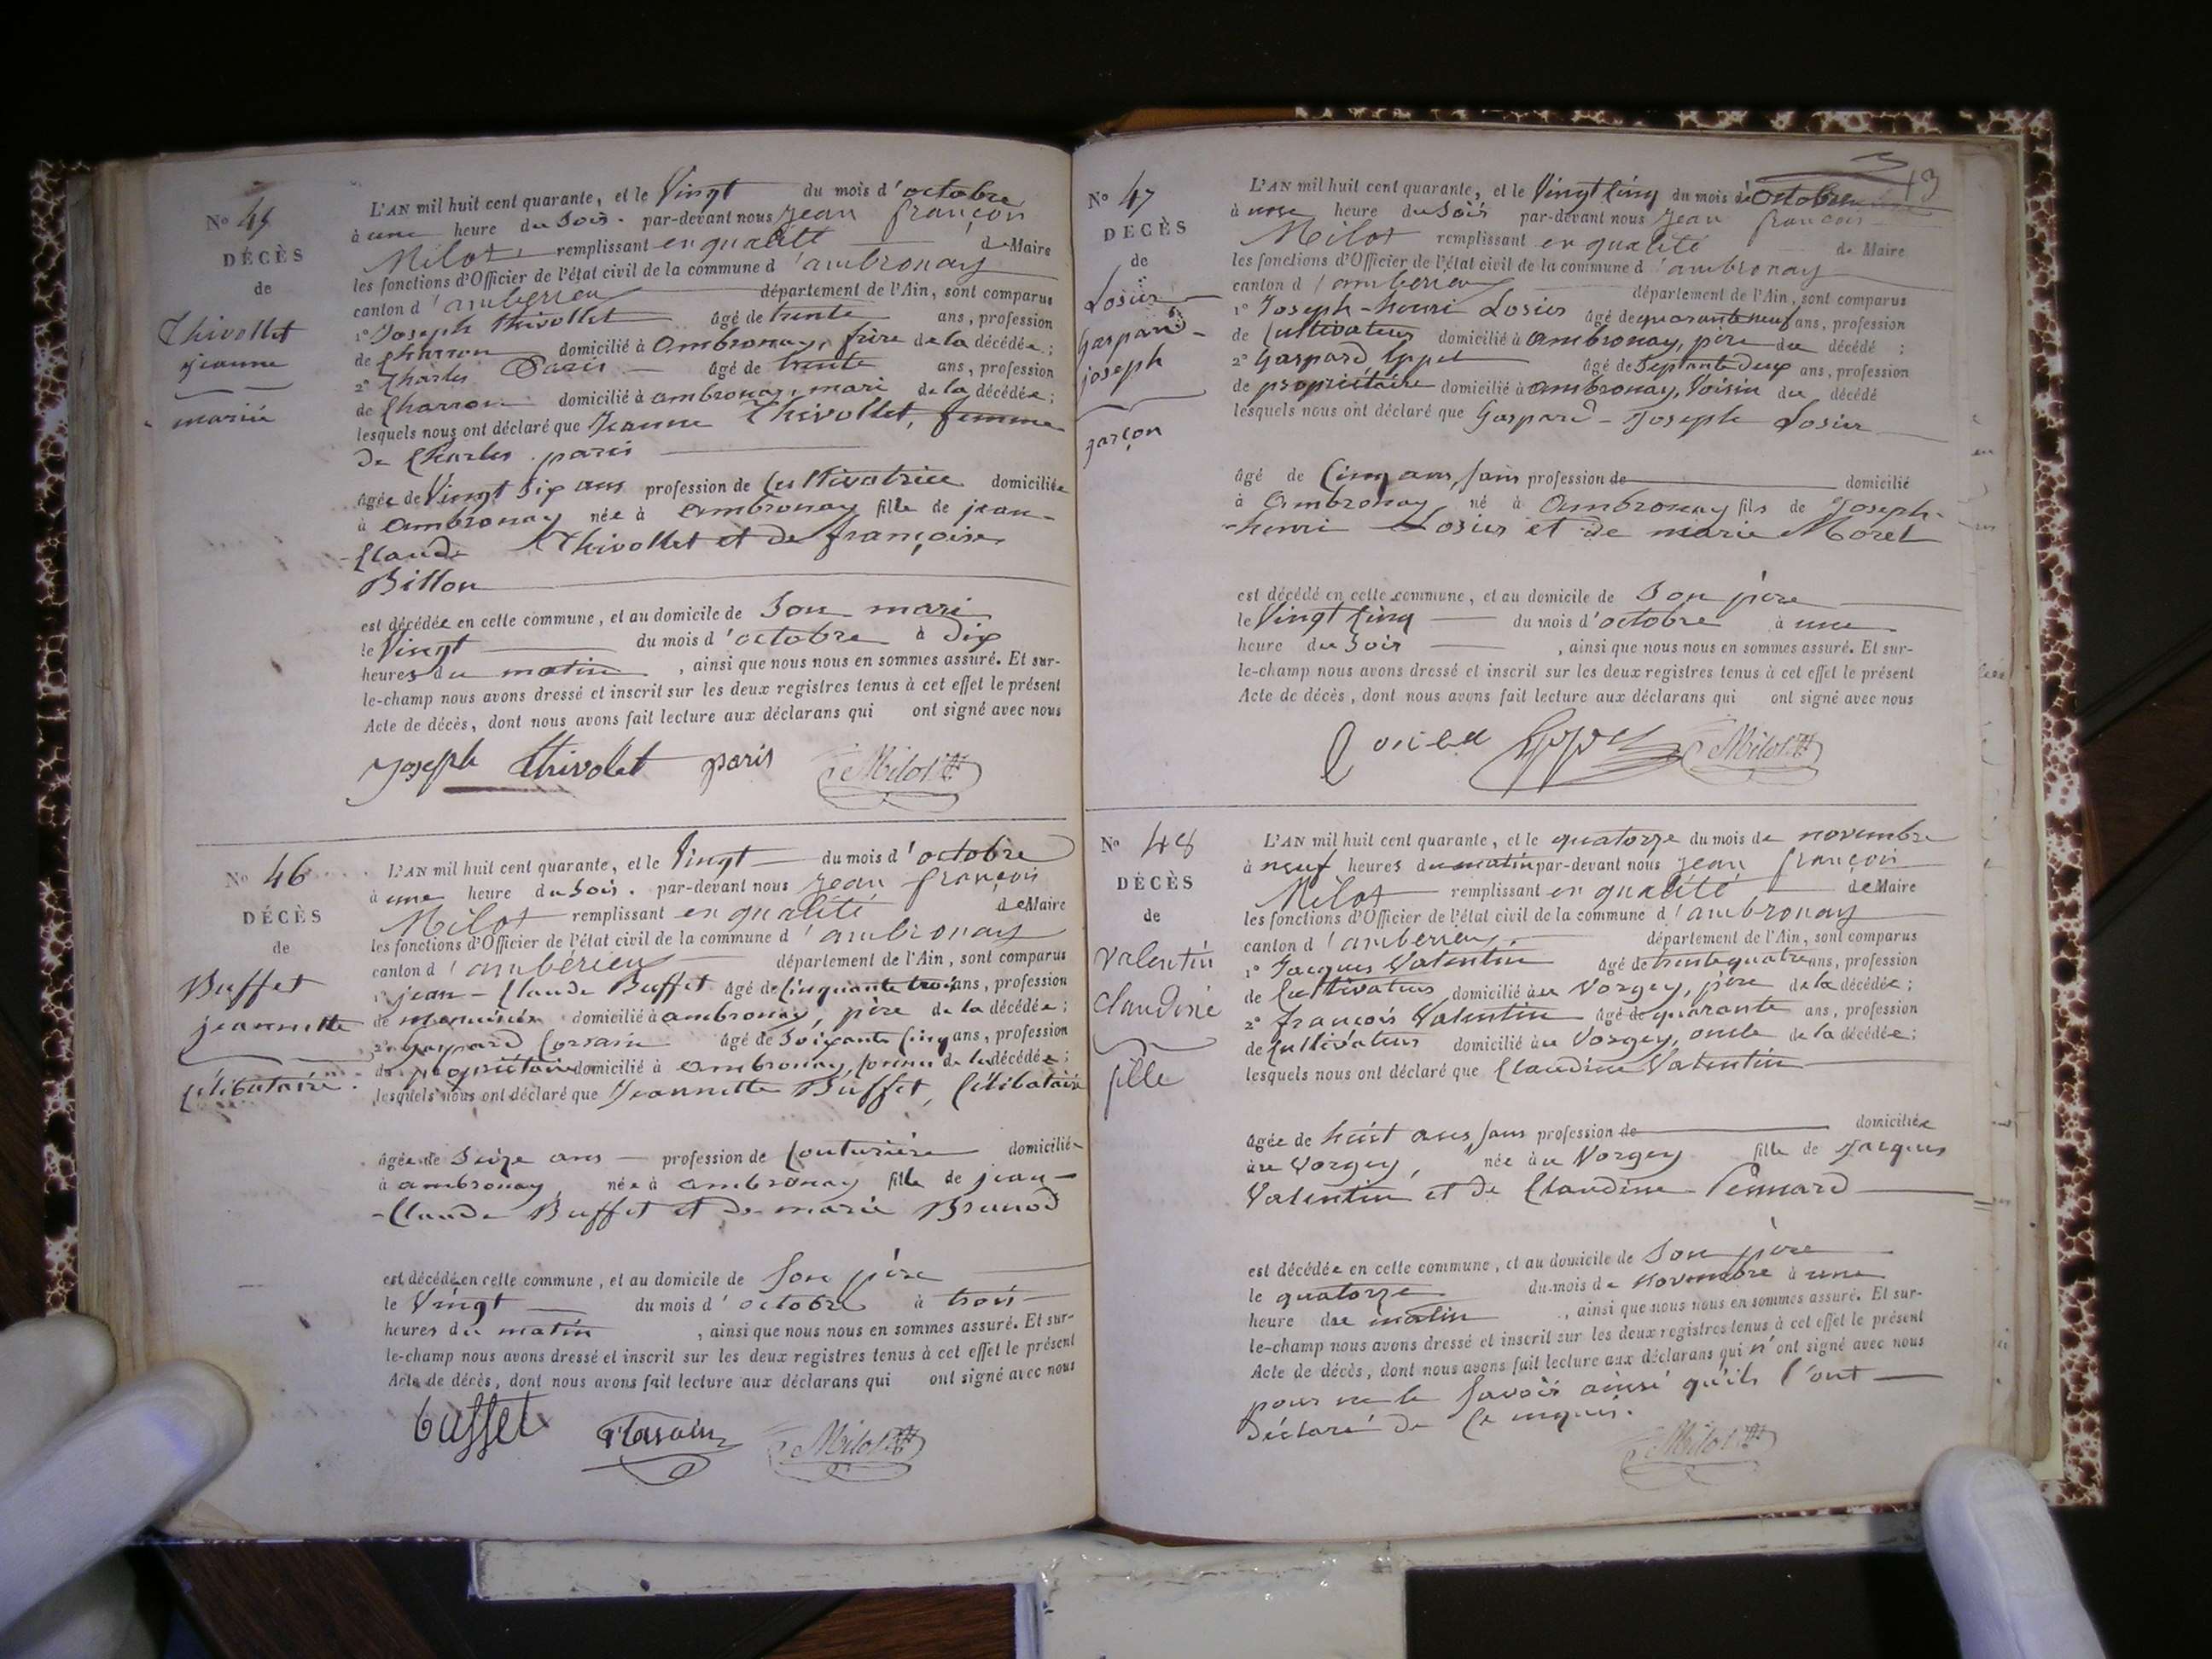 N° 45
DÉCÈS
de
Thivollet
jeanne
mariée
L'AN mil huit cent quarante, et le Vingt du mois d'octobre
à une heure du Soir. par-devant nous Jean françois
Milot, remplissant en qualité de Maire
les fonctions d'Officier de l'état civil de la commune d'ambronay
canton d'amberieu département de l'Ain, sont comparus
1° Joseph thivollet âgé de trente ans, profession
de Charron domicilié à Ambronay, frère de la décédée;
2° Charles Paris âgé de trente ans, profession
de Charron domicilié à ambronay, mari de la décédée;
lesquels nous ont déclaré que Jeanne Thivollet, femme
De Charles paris
âgée de Vingt Six ans profession de Cultivatrice domiciliée
à Ambronay née à Ambronay fille de jean-
-Claude Thivollet et de françoise
Billon
est décédée en cette commune, et au domicile de Son mari
le Vingt du mois d'octobre à dix
heures du matin, ainsi que nous nous en sommes assuré. Et sur-
le-champ nous avons dressé et inscrit sur les deux registres tenus à cet effet le présent
Acte de décès, dont nous avons fait lecture aux déclarans qui ont signé avec nous
Joseph thivolet paris Milot
N° 46
DÉCÈS
de
Buffet
jeannette
Célibataire.
L'AN mil huit cent quarante, et le Vingt du mois d'octobre
à une heure du Soir. par-devant nous Jean françois
Milot remplissant en qualité de Maire
les fonctions d'Officier de l'état civil de la commune d'ambronay
canton d'ambérieu département de l'Ain, sont comparus
1° jean-Claude Buffet âgé de Cinquante trois ans, profession
de menuisier domicilié à ambronay, père de la décédée;
2° Gaspard âgé de Soixante Cinq ans, profession
de propriétaire domicilié à ambronay, de la décédée;
lesquels nous ont déclaré que Jeannette Buffet, Célibataire
âgée de Seize ans profession de Couturière domiciliée
à ambronay née à ambronay fille de jean-
-Claude Buffet et de marie Brunod
est décédée en cette commune, et au domicile de Son père
le Vingt du mois d'octobre à trois
heures du matin, ainsi que nous nous en sommes assuré. Et sur-
le-champ nous avons dressé et inscrit sur les deux registres tenus à cet effet le présent
Acte de décès, dont nous avons fait lecture aux déclarans qui ont signé avec nous
buffet Milot
13
N° 47
DÉCÈS
de
Losier
Gaspard-
joseph
garçon
L'AN mil huit cent quarante, et le Vingt Cinq du mois d'Octobre
à une heure du Soir par-devant nous Jean françois
Milot remplissant en qualité de Maire
les fonctions d'Officier de l'état civil de la commune d'ambronay
canton d'amberieu département de l'Ain, sont comparus
1° Joseph-henri Losier âgé de quarante neuf ans, profession
de Cultivateur domicilié à Ambronay, père du décédé;
2° Gaspard âgé de Septante Deux ans, profession
de propriétaire domicilié à Ambronay, Voisin du décédé
lesquels nous ont déclaré que Gaspard-Joseph Losier
âgé de Cinq ans, sans profession de domicilié
à Ambronay né à Ambronay fils de Joseph-
-henri Losier et de marie Morel
est décédé en cette commune, et au domicile de Son père
le Vingt Cinq du mois d'octobre à une
heure du Soir, ainsi que nous nous en sommes assuré. Et sur-
le-champ nous avons dressé et inscrit sur les deux registres tenus à cet effet le présent
Acte de décès, dont nous avons fait lecture aux déclarans qui ont signé avec nous
Milot
N° 48
DÉCÈS
de
Valentin
Claudine
fille
L'AN mil huit cent quarante, et le quatorze du mois de novembre
à neuf heures du matin par-devant nous Jean françois
Milot remplissant en qualité de Maire
les fonctions d'Officier de l'état civil de la commune d'ambronay
canton d'amberieu, département de l'Ain, sont comparus
1° Jacques Valentin âgé de trente quatre ans, profession
de Cultivateur domicilié au Vorgey, père de la décédée;
2° françois Valentin âgé de quarante ans, profession
de Cultivateur domicilié au Vorgey, oncle de la décédée;
lesquels nous ont déclaré que Claudine Valentin
âgée de huit ans, sans profession de domiciliée
au Vorgey, née au Vorgey fille de Jacques
Valentin et de Claudine Pennard
est décédée en cette commune, et au domicile de Son père
le quatorze du mois de novembre à une
heure du matin, ainsi que nous nous en sommes assuré. Et sur-
le-champ nous avons dressé et inscrit sur les deux registres tenus à cet effet le présent
Acte de décès, dont nous avons fait lecture aux déclarans qui n'ont signé avec nous
pour ne le Savoir ainsi qu'ils l'ont
Déclaré de Ce enquis.
Milot